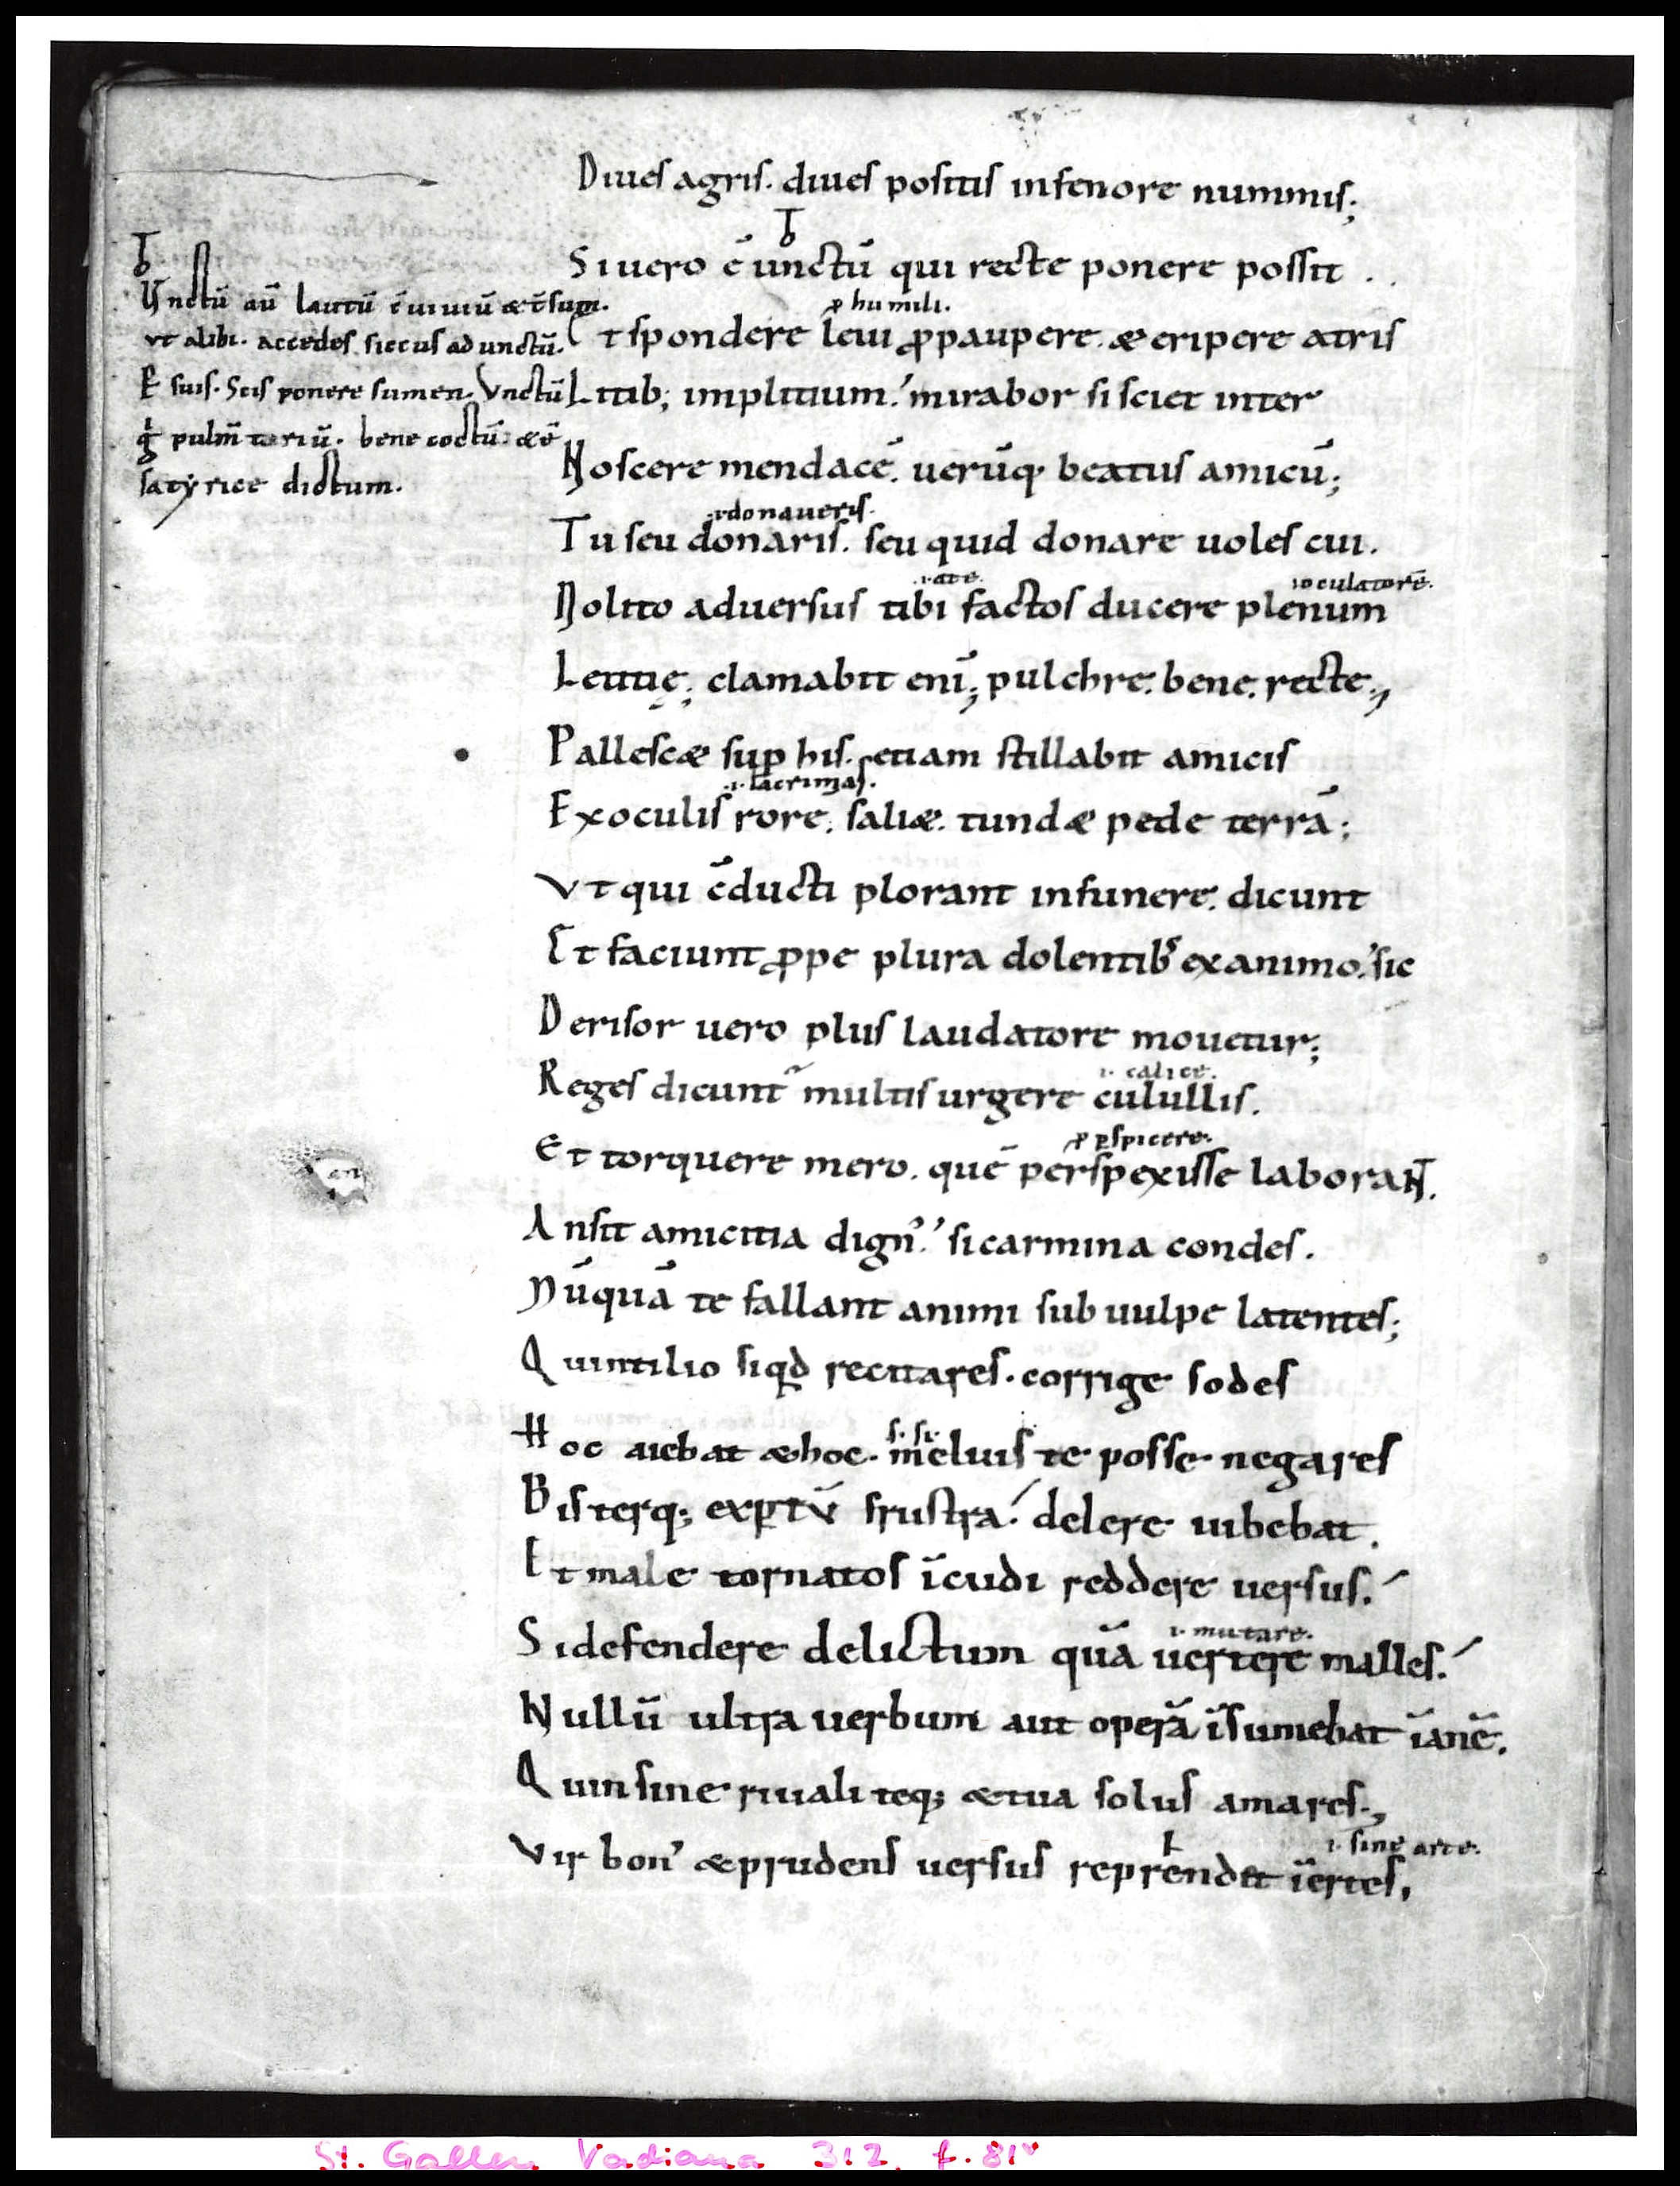 Diues agris. diues positis infenore nummis;
Siuero ē unctū qui recte ponere possit .
p humili.
Et spondere leui ꝓpaupere. & eripere atris
Litib; implitium. mirabor si sciet inter
Noscere mendacē. uerūq; beatus amicū;
.i.donaueris.
Tu seu donaris. seu quid donare uoles cui.
.i. a te. ioculatorē.
Nolito aduersus tibi factos ducere plenum
Letitię; clamabit enī; pulchre. bene. recte;
Pallesc& sup his. etiam stillabit amicis
.i. lacrimas.
Exoculis rore. sali&. tund& pede terrā;
Vt qui c̄ducti plorant infunere. dicunt
Et faciunt ꝓpe plura dolentib; exanimo. sic
Derisor uero plus laudatore mouetur;
i. calice.
Reges dicunt̄ multis urgere culullis.
p ꝑspicere.
Et torquere mero. quē perspexisse laborant.
Ansit amicitia dign'. sicarmina condes.
Nūquā te fallant animi sub uulpe latentes;
Quintilio siqd recitares. corrige sodes
s. si.
Hoc aiebat &hoc. meluis te posse negares
Bis terq; exꝑtū frustra. delere iubebat.
Et male tornatos īcudi reddere uersus.
i. mutare.
Sidefendere delictum quā uertere malles.
Nullū ultra uerbum aut operā īsumebat īanē.
Quinsine riuali teq; &tua solus amares;
i. sine arte.
Vir bon' &prudens uersus reprendet īertes,
Unctū aū lautū c̄uiuiū &t̄sum.
vt alibi. accedes siccus ad unctū.
E suis. Scis ponere sumen. Vnctū
g pulm̄tariū. bene coctū. &ē
satyrice dictum.
St. Gallen Vadiana 312, f. 81v